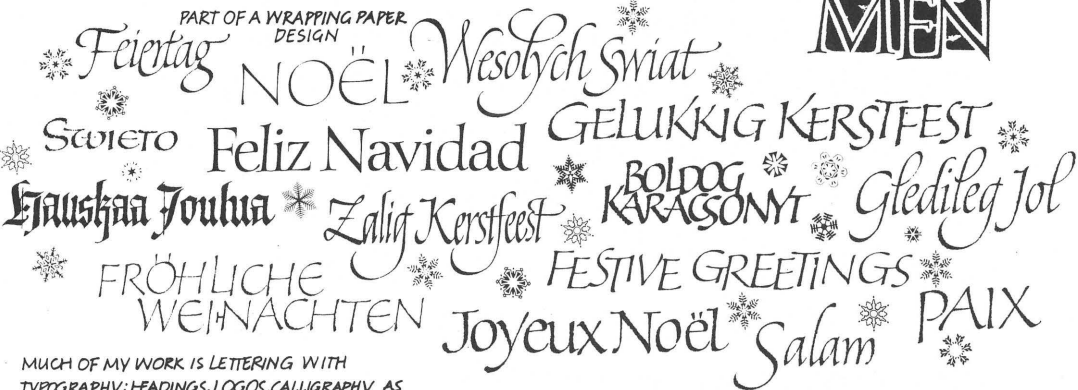 PART OF A WRAPPING PAPER
DESIGN
MEN
Feiertag
NOËL
Wesolych Swiat
Swieto
Feliz Navidad
GELUKKIG KERSTFEST
Hauskaa Joulua
Zalig Kerstfeest
BOLDOG
KARACSONYT
Gledileg Jol
FRÖHLICHE
WEIHNACHTEN
Joyeux Noël
FESTIVE GREETINGS
Salam
PAIX
MUCH OF MY WORK IS LETTERING WITH
TYPOGRAPHY: HEADINGS, LOGOS, CALLIGRAPHY AS